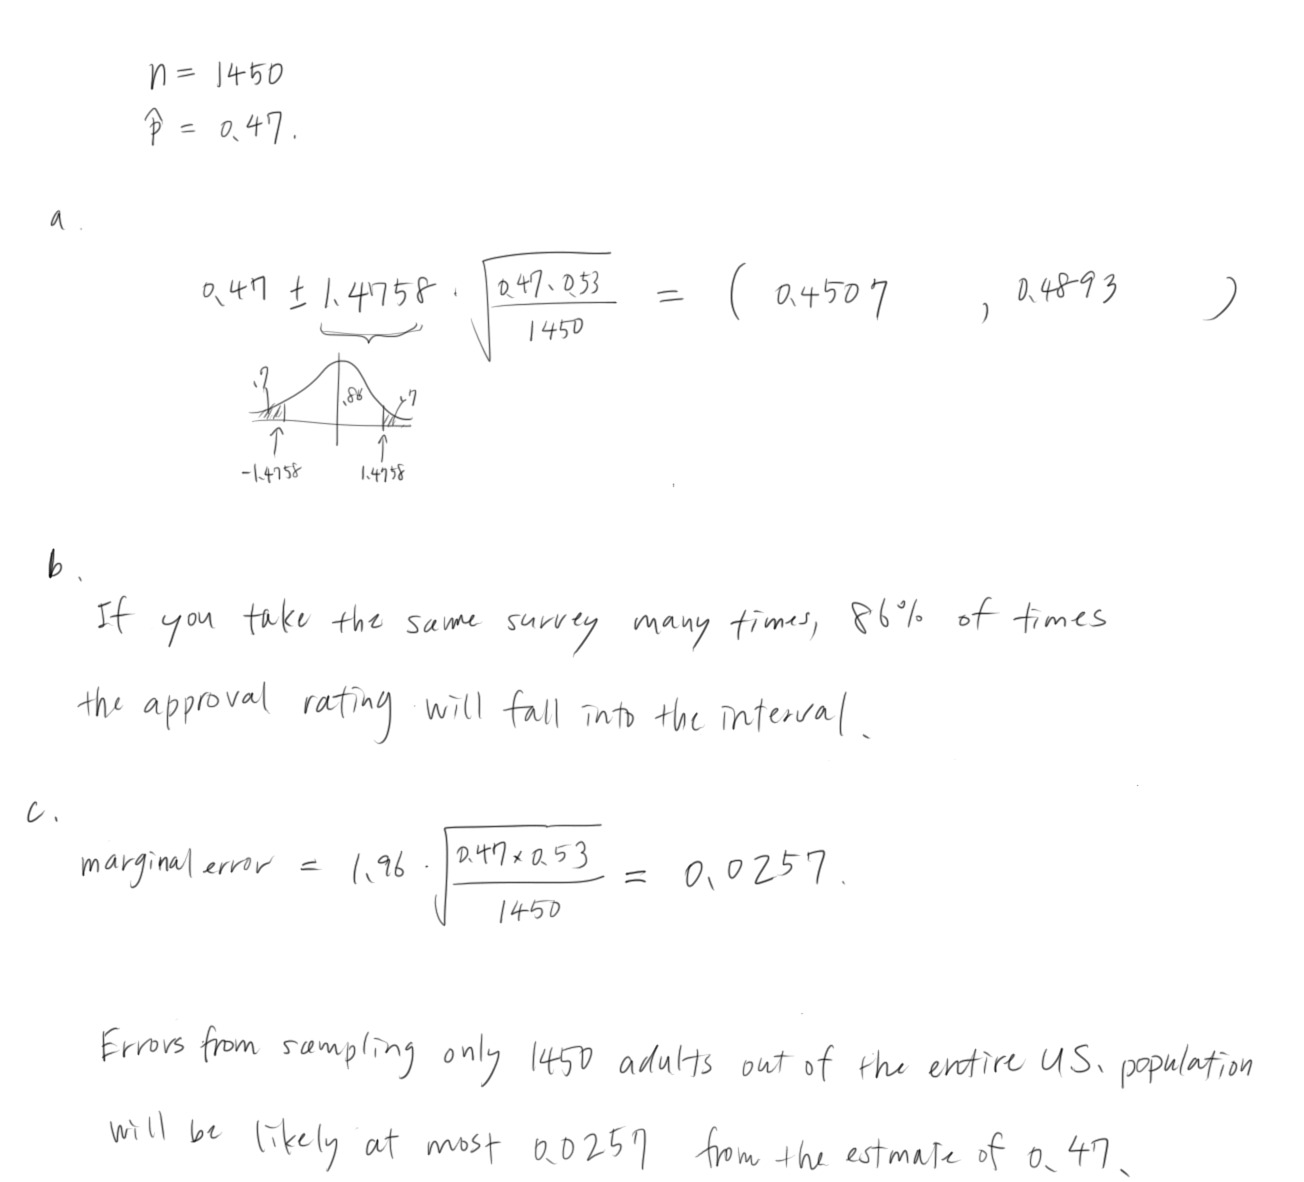 n = 1450
p̂ = 0.47.
a.
0.47 ± 1.4758 · √(0.47·0.53 / 1450) = ( 0.4507 , 0.4893 )
.7 .86 .7
-1.4758 1.4758
b.
If you take the same survey many times, 86% of times
the approval rating will fall into the interval.
c.
marginal error = 1.96 · √(0.47×0.53 / 1450) = 0.0257.
Errors from sampling only 1450 adults out of the entire US. population
will be likely at most 0.0257 from the estmate of 0.47.